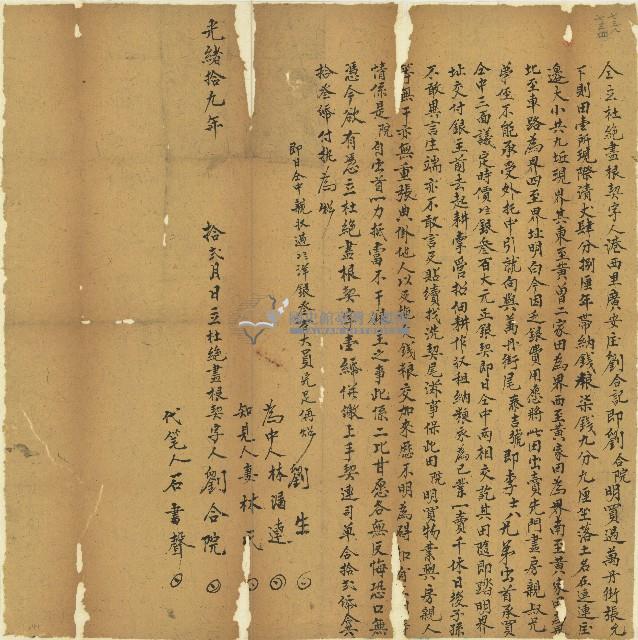 仝立杜絕盡根契字人港西里廣安庄劉合記即劉合院明買過萬丹街張允
下則田壹所現際清丈肆分捌厘年帶納錢粮柒錢九分九厘坐落土名在
邊大小共九坵現界其東至黃曾二家田為界西至黃家田為界南至黃家
北至車路為界四至界址明白今因乏銀費用愿將此田出賣先問盡房親叔兄
弟侄不能承受外托中引就向與萬丹街尾泰吉號即李士八兄弟出首承買
仝中三面議定時價銀叁百大元正銀契即日仝中兩相交訖其田隨即踏明界
址交付銀主前去起耕掌管招佃耕作收租納糧永為己業一賣千休日後子孫
不敢異言生端亦不敢言及貼續找洗契尾滋事保此田院明買物業與房親人
等無干亦無重張典掛他人以及拖欠錢粮交加來歷不明為碍如有
情係是院自出首一力抵當不干銀主之事此係二比甘愿各無反悔恐口無
憑今欲有憑立杜絕盡根契字壹紙併繳上手契連司單合拾貳紙合共
拾叁紙付執為炤
即日仝中親收過洋銀叁百大員完足再炤
劉生
為中人林潘連
知見人妻林氏
光緒拾九年 拾貳月 日立杜絕盡根契字人劉合院
代筆人石書聲
國史館臺灣文獻館
TAIWAN HISTORICA